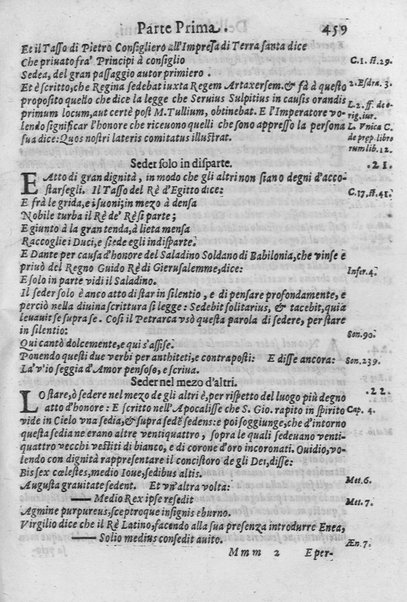 Parte Prima. 459
Et il Tasso di Pietro Consigliero all'Impresa di Terra santa dice
Che priuato frà Principi à consiglio C.1. st.29.
Sedea, del gran passaggio autor primiero.
Et è scritto, che Regina sedebat iuxta Regem Artaxersem. & fà à questo 2. Esdra. 3.
proposito quello che dice la legge che Seruius Sulpitius in causis orandis L.2. ff. de o-
primum locum, aut certè post M. Tullium, obtinebat. E l'Imperatore vo- rig. iur.
lendo significar l'honore che riceuono quelli che sono appresso la persona L. Vnica C.
sua dice: Quos nostri lateris comitatus illustrat. de prep. libro
rum lib. 12.
Seder solo in disparte. 21.
E Atto di gran dignità, in modo che gli altri non siano degni d'acco-
starsegli. Il Tasso del Rè d'Egitto dice: C.17. st.41.
E frà le grida, e i suoni; in mezo à densa
Nobile turba il Rè de' Rè si parte;
E giunto à la gran tenda, à lieta mensa
Raccoglie i Duci, e siede egli indisparte.
E Dante per causa d'honore del Saladino Soldano di Babilonia, che vinse e
priuò del Regno Guido Rè di Gierusalemme, dice: Infer. 4.
E solo in parte vidi il Saladino.
Il seder solo è anco atto di star in silentio, e di pensare profondamente, e
perciò nella diuina scrittura si legge: Sedebit solitarius, & tacebit, quia
leuauit se supra se. Così il Petrarca vsò questa parola di sedere, per stare
in silentio: Son. 90.
Qui cantò dolcemente, e qui s'assise.
Ponendo questi due verbi per anthiteti, e contraposti: E disse ancora: Son. 239.
La'v'io seggia d'Amor pensoso, e scriua.
Seder nel mezo d'altri. 22.
LO stare, ò sedere nel mezo de gli altri è, per rispetto del luogo più degno
atto d'honore: E scritto nell'Apocalisse che S. Gio. rapito in spirito Cap. 4.
vide in Cielo vna sedia, & supra sedē sedens: e poi soggiunge, che d'intorno
questa sedia ne erano altre ventiquattro, sopra le quali sedeuano venti-
quattro vecchi vestiti di bianco, e di corone d'oro incoronati. Ouidio, vo-
lendo con dignità rappresentare il concistoro de gli Dei, disse:
Bis sex cælestes, medio Ioue, sedibus altis.
Augusta grauitate sedent. Et vn'altra volta: Met. 6.
—— Medio Rex ipse resedit
Agmine purpureus, sceptroque insignis eburno. Met. 7.
Virgilio dice che il Rè Latino, facendo alla sua presenza introdurre Enea,
—— Solio medius consedit auito. Æn. 7.
Mmm 2 E per-